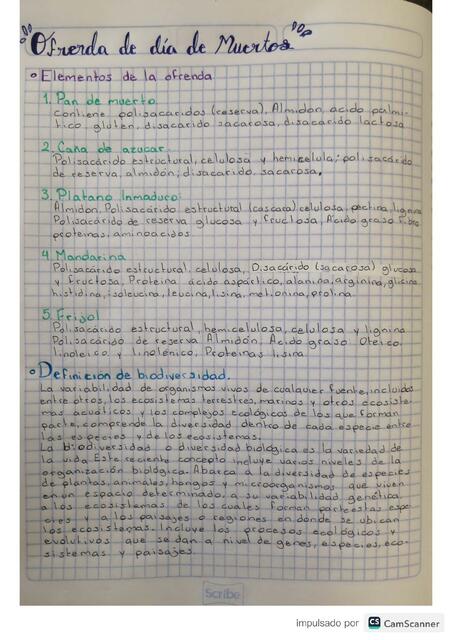 Ofrenda de día de Muertos
• Elementos de la ofrenda
1. Pan de muerto
Contiene polisacaridos (reserva), Almidon, acido palmi-
tico, gluten, disacarido sacarosa, disacarido lactosa
2. Caña de azucar
Polisacárido estructural, celulosa y hemicelula; polisacárido
de reserva, almidón; disacarido, sacarosa.
3. Platano Inmaduro:
Almidon, Polisacárido estructural (cascara) celulosa, pectina, lignina
Polisacárido de reserva glucosa y fructosa, Acido graso Fibra
proteinas, aminoacidos
4. Mandarina
Polisacárido estructural, celulosa, Disacárido (sacarosa) glucosa
y fructosa, Proteina ácido aspártico, alanina, arginina, glicina
histidina, isoleucina, leucina, lisina, metionina, prolina
5. Frijol
Polisacárido estructural, hemicelulosa, celulosa y lignina
Polisacárido de reserva Almidón, Acido graso Oleico,
linoleico y linolénico, Proteinas lisina.
• Definicion de biodiversidad.
La variabilidad de organismos vivos de cualquier fuente, incluidos
entre otros, los ecosistemas terrestres, marinos y otros ecosiste-
mas acuáticos y los complejos ecológicos de los que forman
parte, comprende la diversidad dentro de cada especie entre
las especies y de los ecosistemas.
La biodiversidad o diversidad biológica es la variedad de
la vida. Este reciente concepto incluye varios niveles de la
organización biológica. Abarca a la diversidad de especies
de plantas, animales, hongos y microorganismos que viven
en un espacio determinado, a su variabilidad genética,
a los ecosistemas de los cuales forman parte estas espe-
cies y a los paisajes o regiones en donde se ubican
los ecosistemas. Incluye los procesos ecológicos y
evolutivos que se dan a nivel de genes, especies, eco-
sistemas y paisajes.
Scribe
impulsado por CS CamScanner